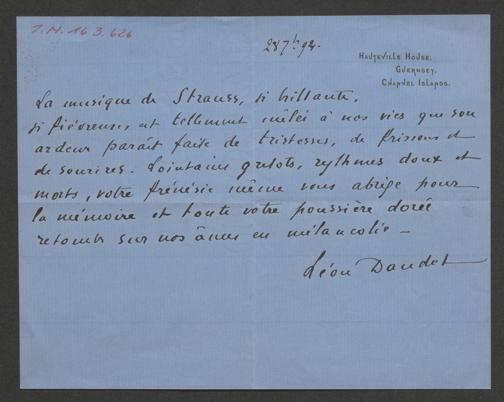 I.N. 163.626
28 7bre 94.
HAUTEVILLE HOUSE.
GUERNSEY.
CHANNEL ISLANDS.
La musique de Strauss, si brillante,
si fiévreuse, est tellement mêlée à nos vies que son
ardeur paraît faite de tristesses, de frissons et
de sourires. Lointains grelots, rythmes doux et
morts, votre frénésie même vous abrège pour
la mémoire et toute votre poussière dorée
retombe sur nos âmes en mélancolie —
Léon Daudet